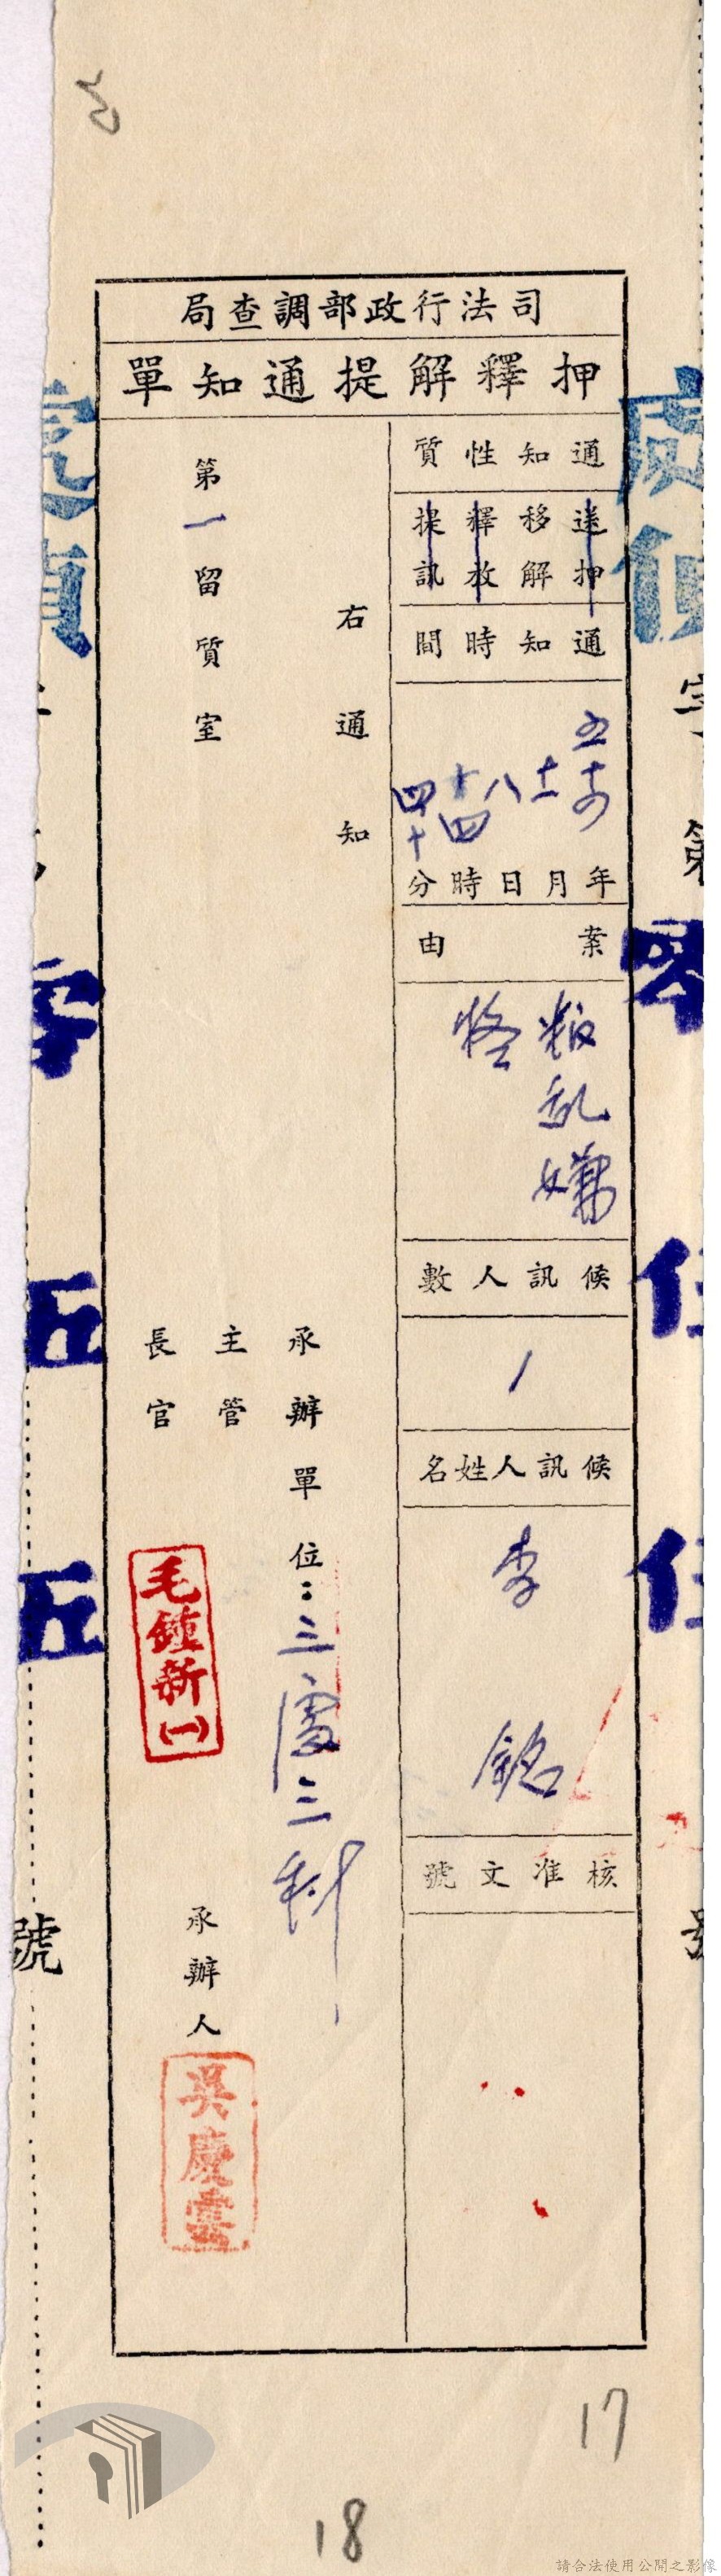 司法行政部調查局
押釋解提通知單
通知性質
送押
移解
釋放
提訊
通知時間
五十四年
十一月
八日
十四時
四十分
案由
叛乱嫌
候訊人數
1
候訊人姓名
李銘
核准文號
右通知
第一留質室
承辦單位：三處三科
主管
長官
毛鍾新(一)
承辦人
吳慶雲
五五
號
17
18
請合法使用公開之影像